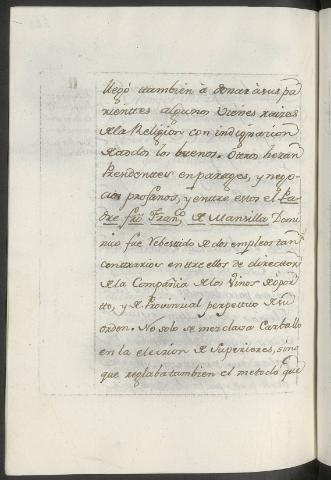 llegò tambien à donar à sus pa
rientes algunos vienes raizes
de la Religion con indignacion
de todos los buenos. Otros heran
Presidentes en parages, y nego
cios profanos, y entre estos el Pa
dre frõ Fran.co de Mansilla Domi
nico fue Rebestido de dos empleos tan
contrarios entre ellos de director
de la Compañia de los Vinos de opor
to, y de Provincial perpetuo de su
orden. No solo se mezclava Carballo
en la eleccion de Superiores, sino
que reglaba tambien el metodo que